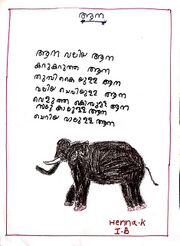 ആന
ആന വലിയ ആന
കറുകറുത്ത ആന
തുമ്പികൈയുള്ള ആന
വലിയ ചെവിയുള്ള ആന
വെളുത്ത കൊമ്പുള്ള ആന
നാലു കാലുള്ള ആന
ചെറിയ വാലുള്ള ആന
Henna-K
I-B